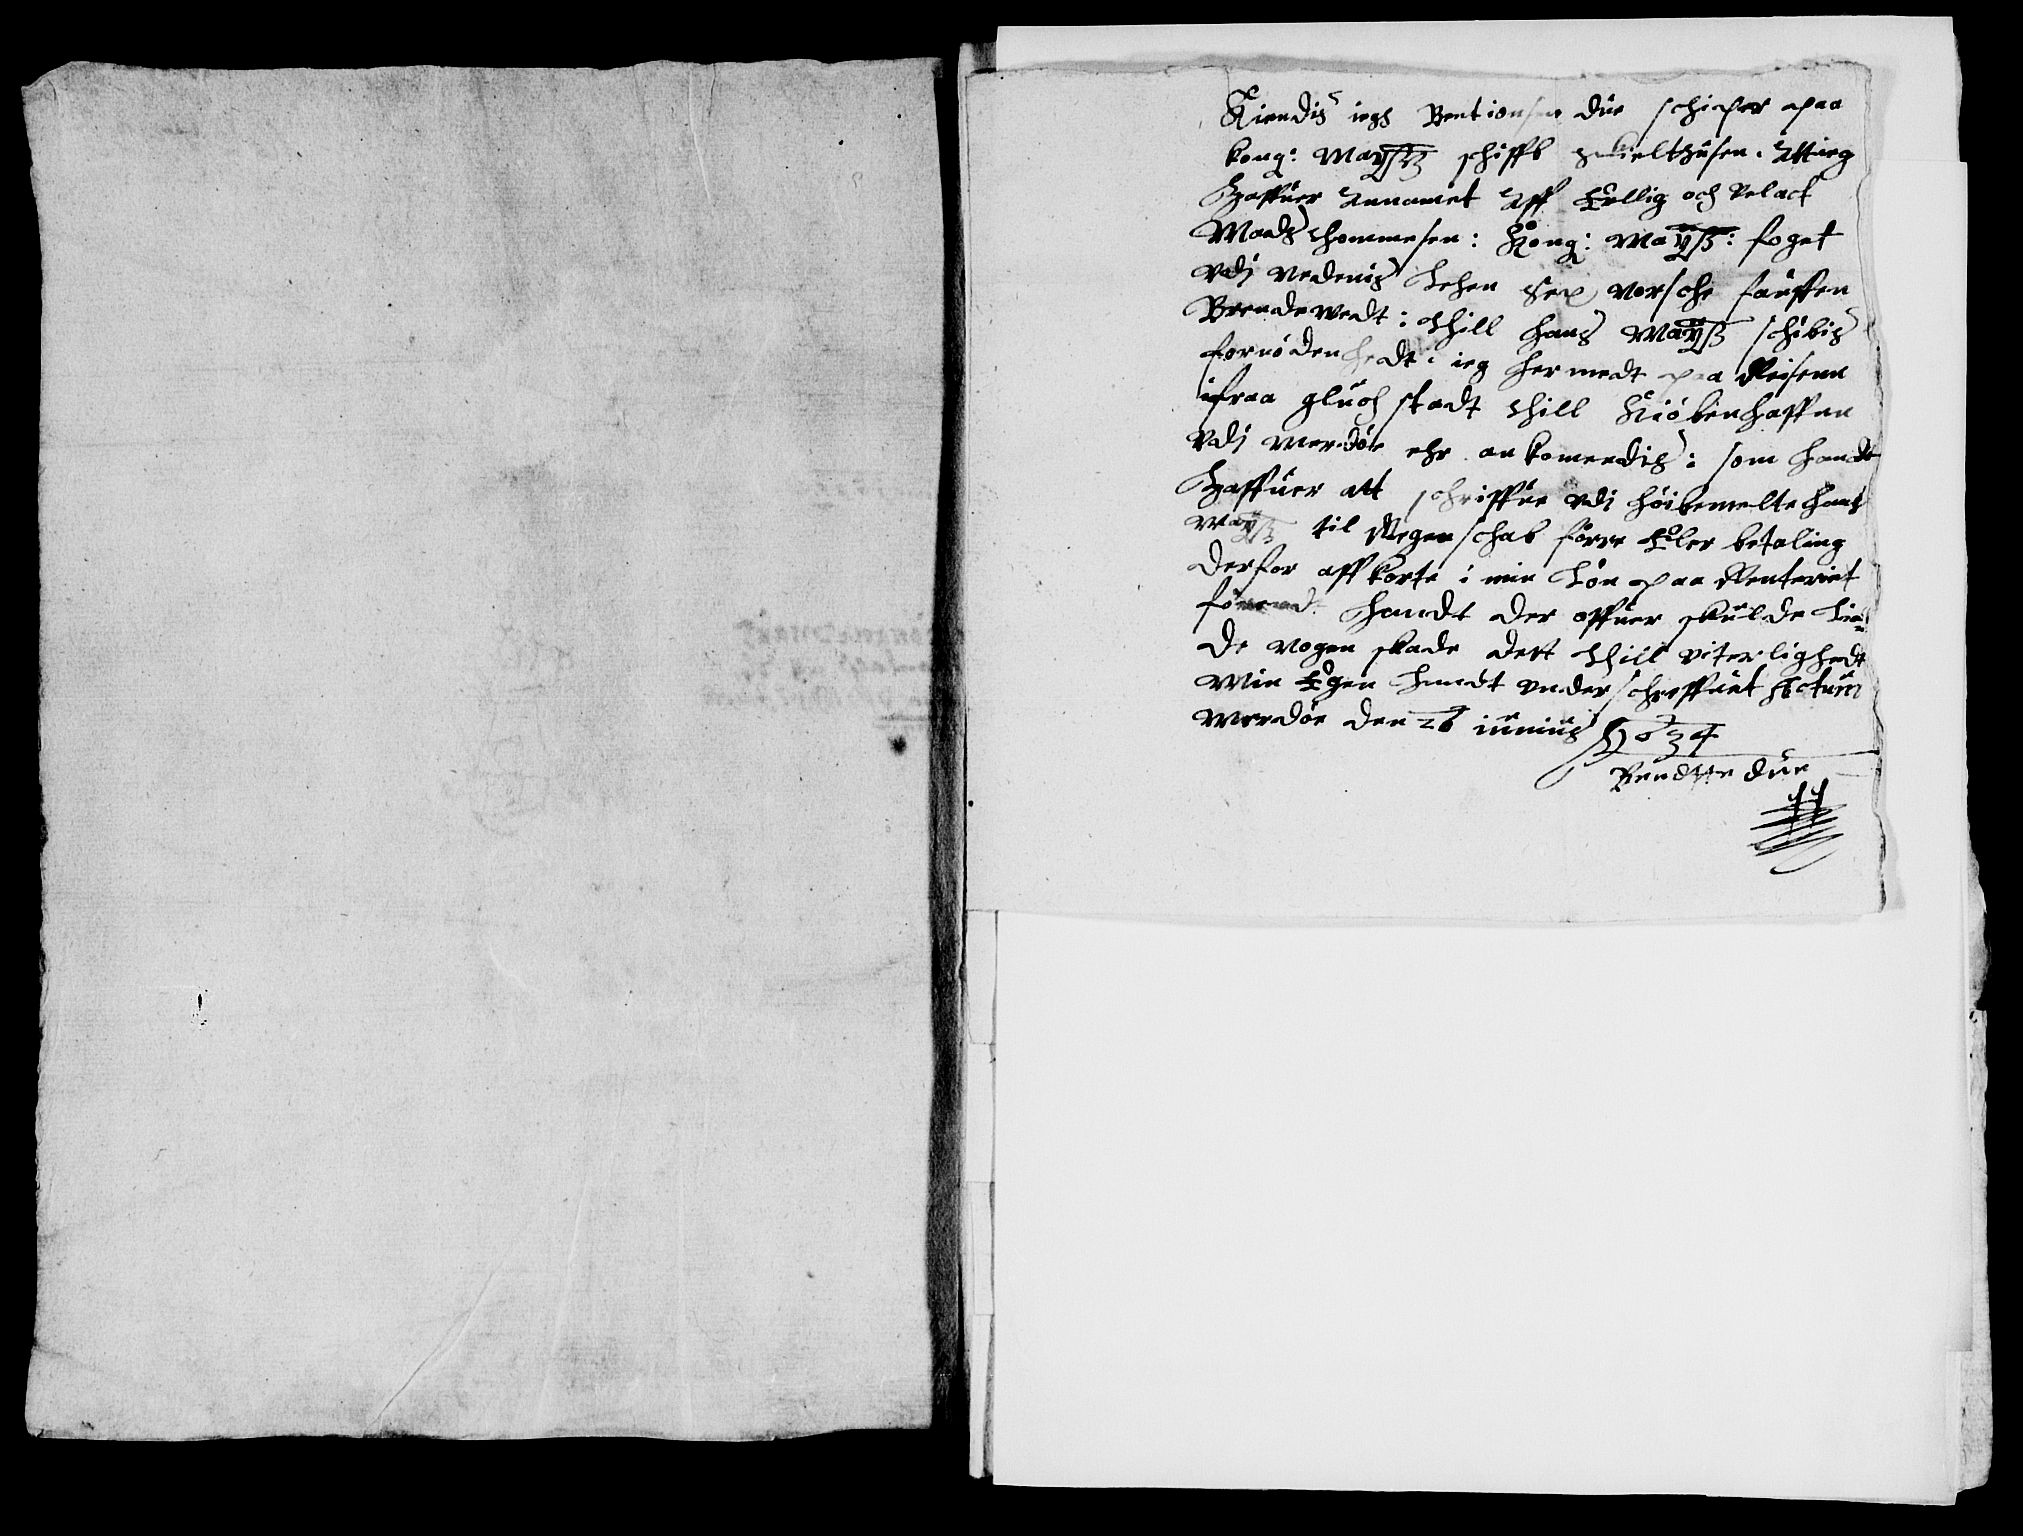 Kiendis iegh Bent ionsen due schiper paa
kong: Mayst schiffb Att ieg
Haffuer Annamet Aff Erllig och velact
Mads thommesen: Kong: Mayst: foget
vdj nedenis Lehen Sex norsche fauffen
Brendewedt: thill hans Mayst schibis
fornödenhedt: ieg hermedt paa Reisenn
ifraa gluchstadt thill Kiöbenhaffnn
vdj merdöe ehr ankomendis: som handt
Haffuer att schriffue vdj höibemelte hans
Mayst til Regenschab förre Eler betaling
derfor aff korte i min Lön paa Renteriet
förend handt der offuer skulde Lie=
de nogen skade dett thill viterlighedt
Min Egen handt vnderschreffuet Actum
Merdöe den 26 iunius Ao 1634
Bendtte due